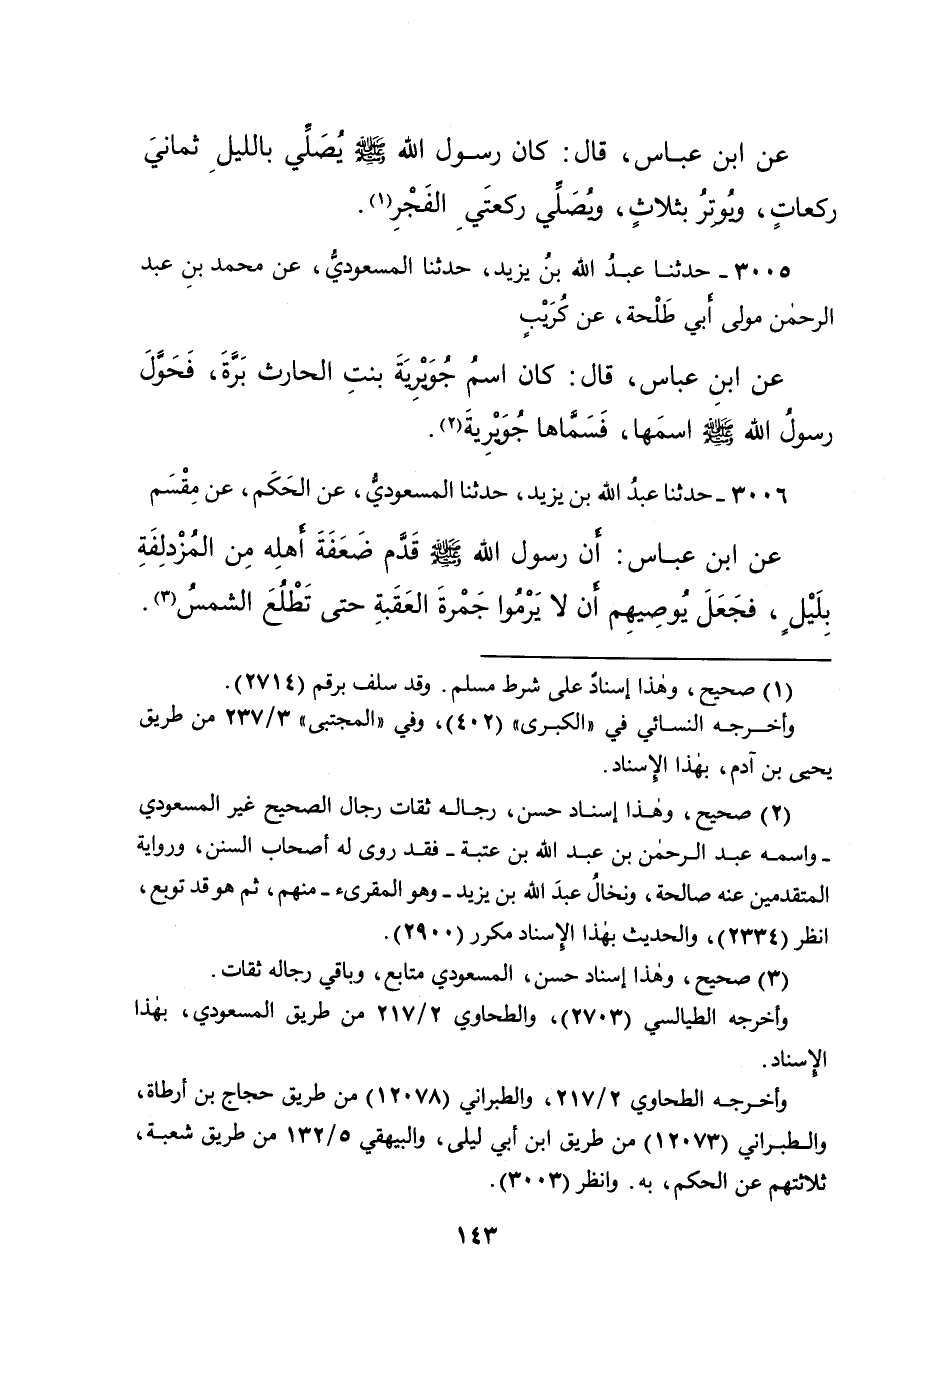 عن ابن عباس، قال: كان رسول الله ﷺ يُصَلِّي بالليلِ ثمانيَ
ركعاتٍ، ويُوتِرُ بثلاثٍ، ويُصَلِّي ركعتَيِ الفَجْرِ(١).
٣٠٠٥ - حدثنا عبدُ الله بنُ يزيد، حدثنا المسعوديُّ، عن محمد بنِ عبد
الرحمٰن مولى أَبي طَلْحة، عن كُرَيْبٍ
عن ابنِ عباس، قال: كان اسمُ جُوَيْرِيَةَ بنتِ الحارث بَرَّةَ، فَحَوَّلَ
رسولُ الله ﷺ اسمَها، فَسَمَّاها جُوَيْرِيةَ(٢).
٣٠٠٦ - حدثنا عبدُ الله بن يزيد، حدثنا المسعوديُّ، عن الحَكَم، عن مِقْسَم
عن ابن عباس: أَن رسول الله ﷺ قَدَّم ضَعَفَةَ أَهلِه مِن المُزْدلِفَةِ
بِلَيْلٍ، فجَعَلَ يُوصِيهِم أَن لا يَرْمُوا جَمْرةَ العَقَبةِ حتى تَطْلُعَ الشمسُ(٣).
(١) صحيح، وهٰذا إسنادٌ على شرط مسلم. وقد سلف برقم (٢٧١٤).
وأخرجه النسائي في «الكبرى» (٤٠٢)، وفي «المجتبى» ٢٣٧/٣ من طريق
يحيى بن آدم، بهٰذا الإِسناد.
(٢) صحيح، وهٰذا إسناد حسن، رجاله ثقات رجال الصحيح غير المسعودي
- واسمه عبد الرحمٰن بن عبد الله بن عتبة - فقد روى له أصحاب السنن، ورواية
المتقدمين عنه صالحة، ونخالُ عبدَ الله بن يزيد - وهو المقرىء - منهم، ثم هو قد توبع،
انظر (٢٣٣٤)، والحديث بهٰذا الإِسناد مكرر (٢٩٠٠).
(٣) صحيح، وهٰذا إسناد حسن، المسعودي متابع، وباقي رجاله ثقات.
وأخرجه الطيالسي (٢٧٠٣)، والطحاوي ٢١٧/٢ من طريق المسعودي، بهٰذا
الإِسناد.
وأخرجه الطحاوي ٢١٧/٢، والطبراني (١٢٠٧٨) من طريق حجاج بن أرطاة،
والطبراني (١٢٠٧٣) من طريق ابن أبي ليلى، والبيهقي ١٣٢/٥ من طريق شعبة،
ثلاثتهم عن الحكم، به. وانظر (٣٠٠٣).
١٤٣